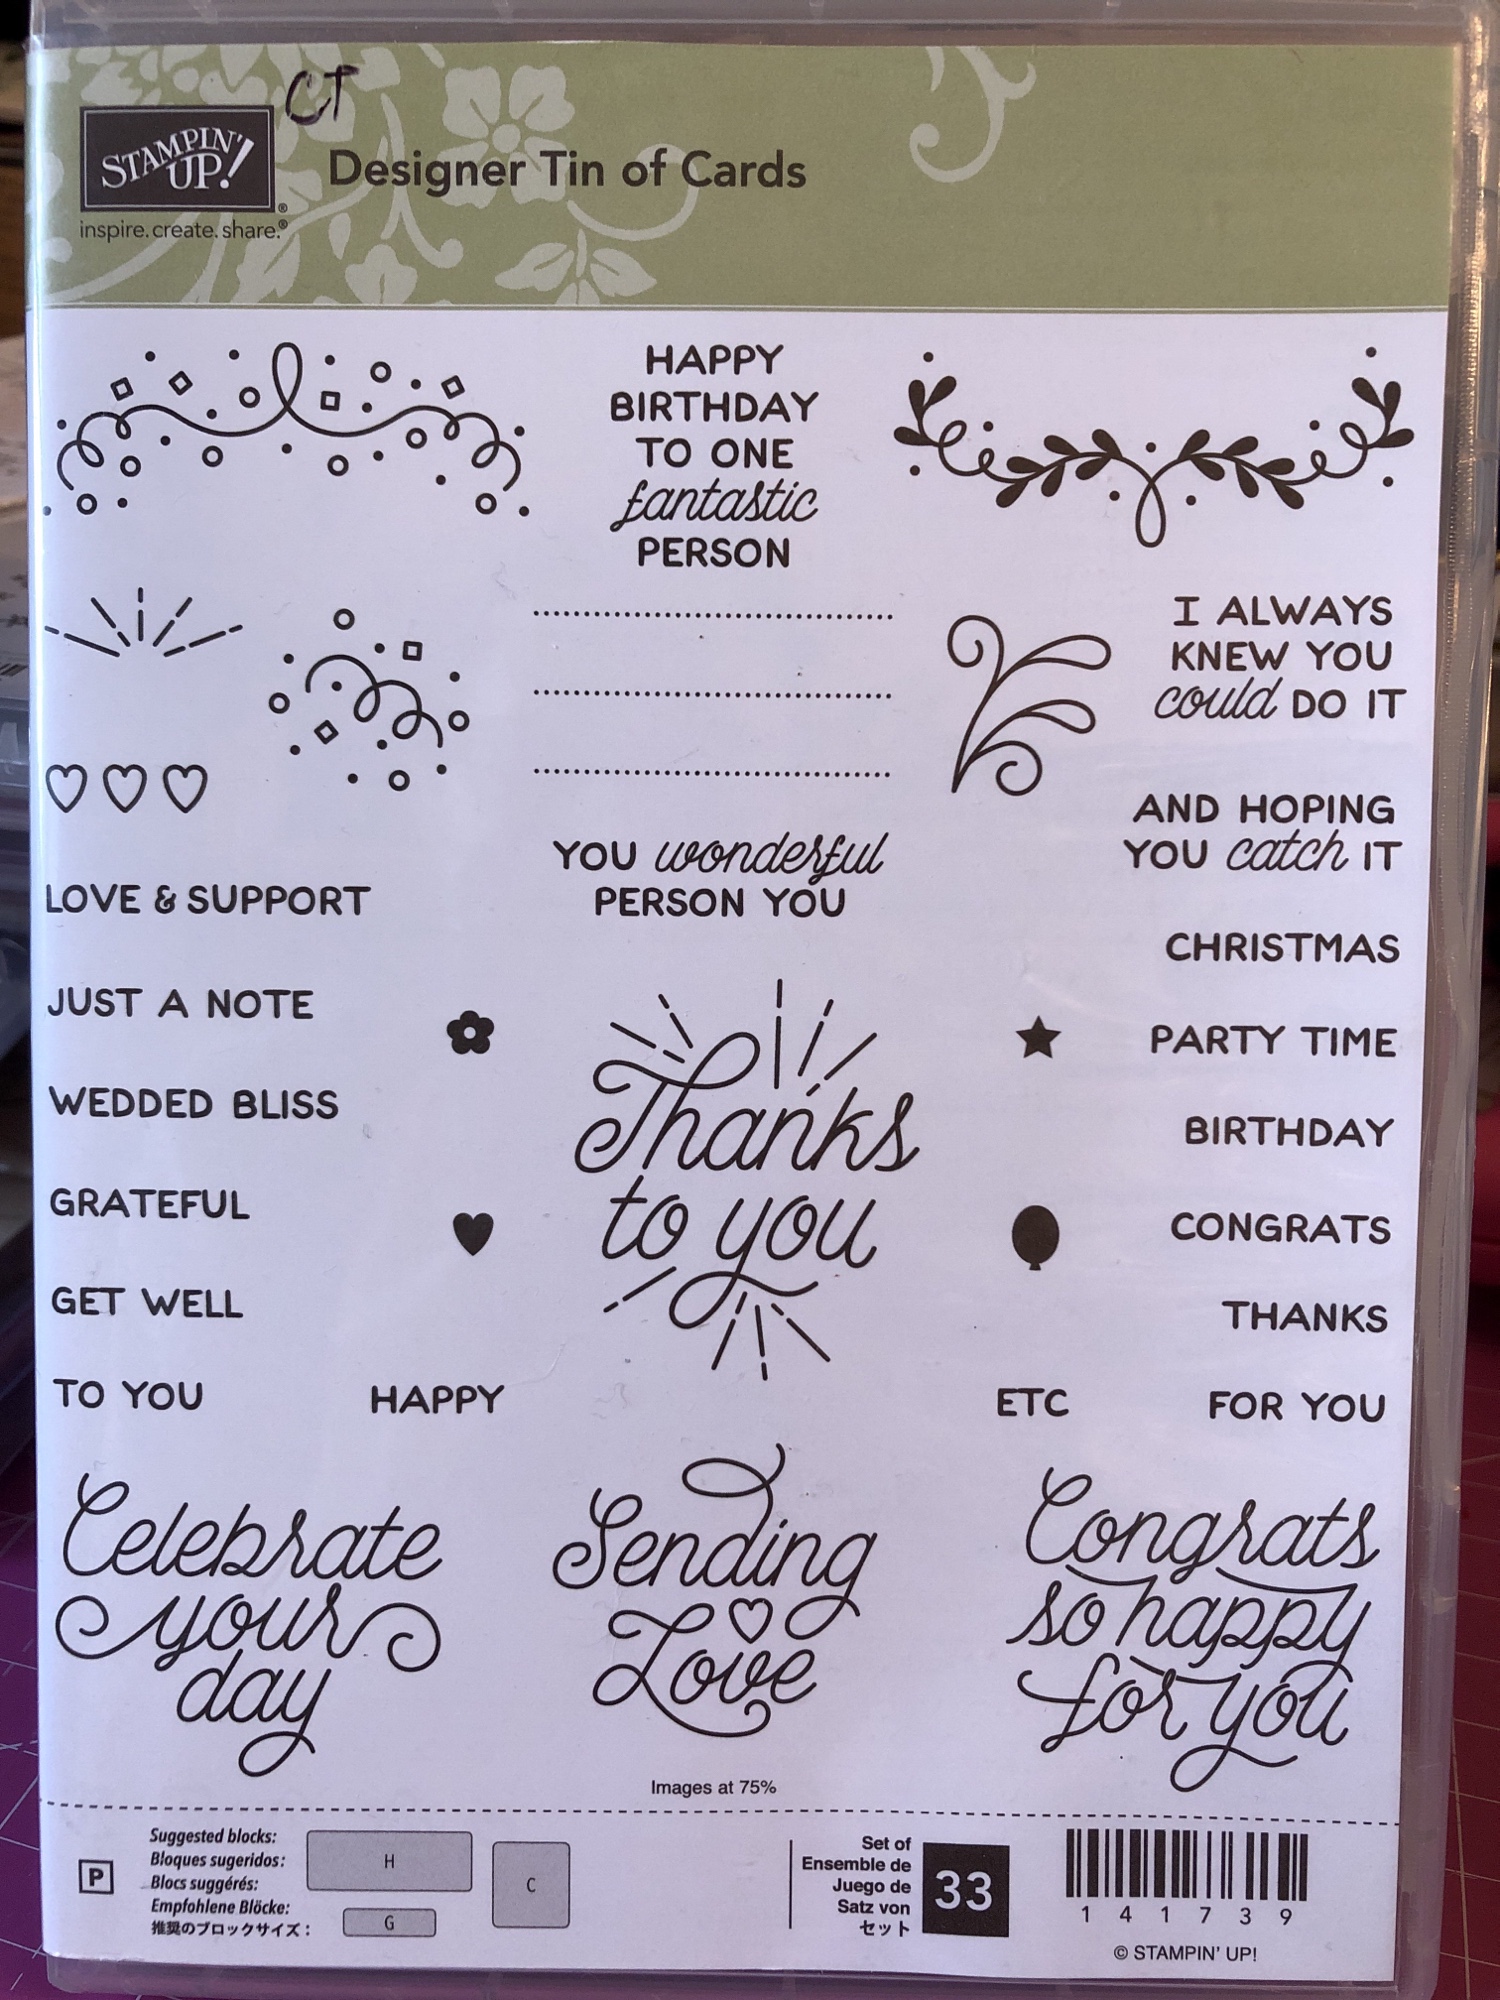 CT
STAMPIN' UP!®
inspire.create.share.®
Designer Tin of Cards
HAPPY
BIRTHDAY
TO ONE
fantastic
PERSON
I ALWAYS
KNEW YOU
could DO IT
AND HOPING
YOU catch IT
YOU wonderful
PERSON YOU
LOVE & SUPPORT
JUST A NOTE
WEDDED BLISS
GRATEFUL
GET WELL
TO YOU
HAPPY
Thanks
to you
CHRISTMAS
PARTY TIME
BIRTHDAY
CONGRATS
THANKS
ETC
FOR YOU
Celebrate
your
day
Sending
Love
Congrats
so happy
for you
Images at 75%
P
Suggested blocks:
Bloques sugeridos:
Blocs suggérés:
Empfohlene Blöcke:
推奨のブロックサイズ：
H
G
C
Set of
Ensemble de
Juego de
Satz von
セット
33
141739
© STAMPIN' UP!